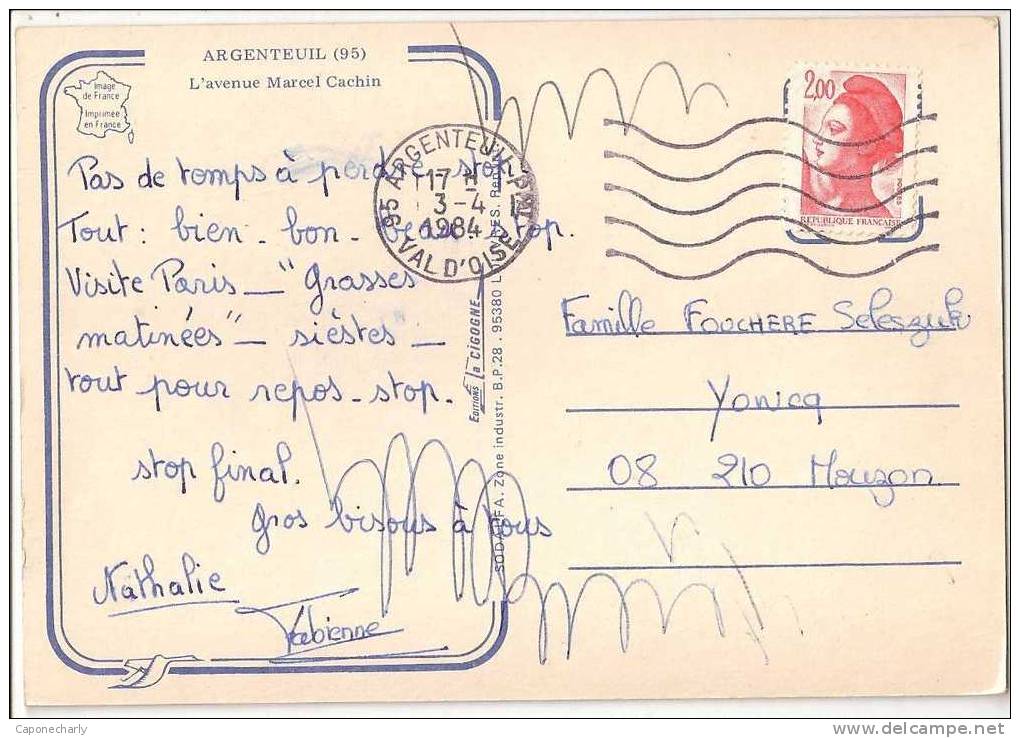 ARGENTEUIL (95)
L'avenue Marcel Cachin
Image
de France
Imprimée
en France
Pas de temps à perdre - stop.
Tout : bien - bon - beau - stop.
Visite Paris _ "Grasses
matinées" _ siéstes _
tout pour repos - stop.
stop final.
Gros bisous à vous
Nathalie
Fabienne
95 ARGENTEUIL PPAL
17 H
3-4
1984
VAL D'OISE
EDITIONS la CIGOGNE
ZONE industr. B.P.28 . 95380
2,00
POSTES
REPUBLIQUE FRANÇAISE
Famille FOUCHERE Seleszuk
Yonicq
08 210 Mouzon
Caponecharly
delcampe.net